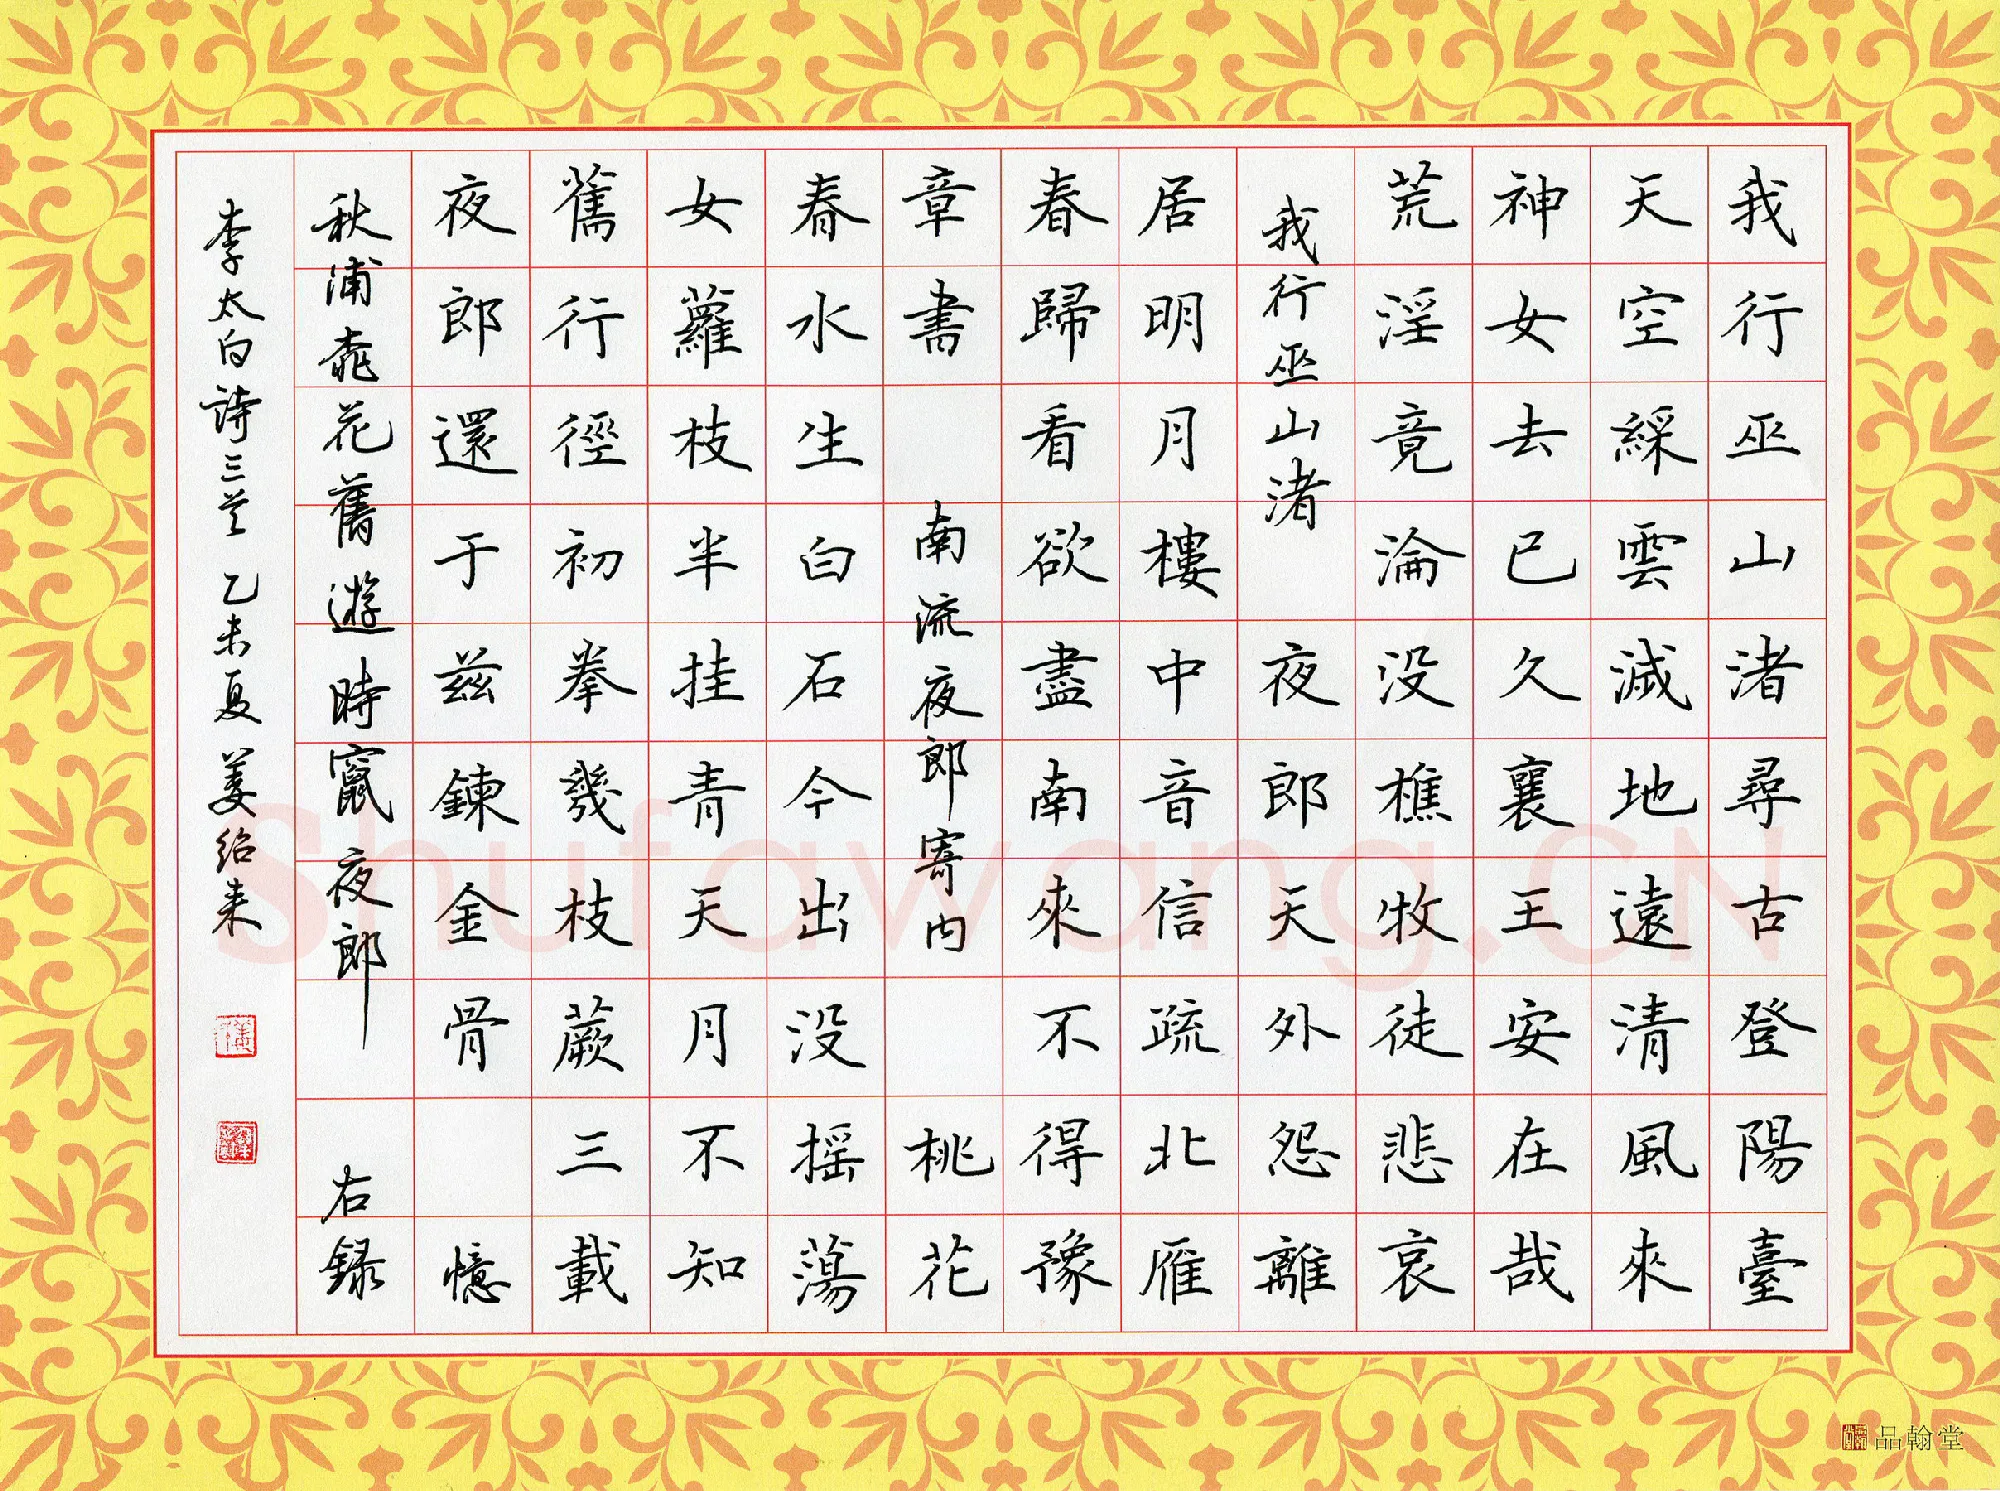 我行巫山渚尋古登陽臺
天空綵雲滅地遠清風來
神女去已久襄王安在哉
荒淫竟淪没樵牧徒悲哀
我行巫山渚 夜郎天外怨離
居明月樓中音信疏北雁
春歸看欲盡南來不得豫
章書 南流夜郎寄内 桃花
春水生白石今出没摇蕩
女蘿枝半挂青天月不知
舊行徑初拳幾枝蕨三載
夜郎還于兹鍊金骨 憶
秋浦桃花舊遊時竄夜郎 右録
李太白詩三首 乙未夏 姜绍来
品翰堂
Shufawang.CN